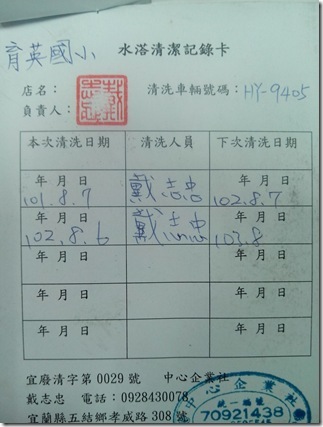 育英國小
水塔清潔記錄卡
店名：
負責人：
清洗車輛號碼：HY-9405
本次清洗日期 清洗人員 下次清洗日期
年 月 日 年 月 日
101.8.7 戴志忠 102.8.7
年 月 日 年 月 日
102.8.6 戴志忠 103.8
年 月 日 年 月 日
年 月 日 年 月 日
年 月 日 年 月 日
宜廢清字第0029號 中心企業社
戴志忠 電話：0928430078
宜蘭縣五結鄉孝威路308號
中心企業社
統一編號
70921438